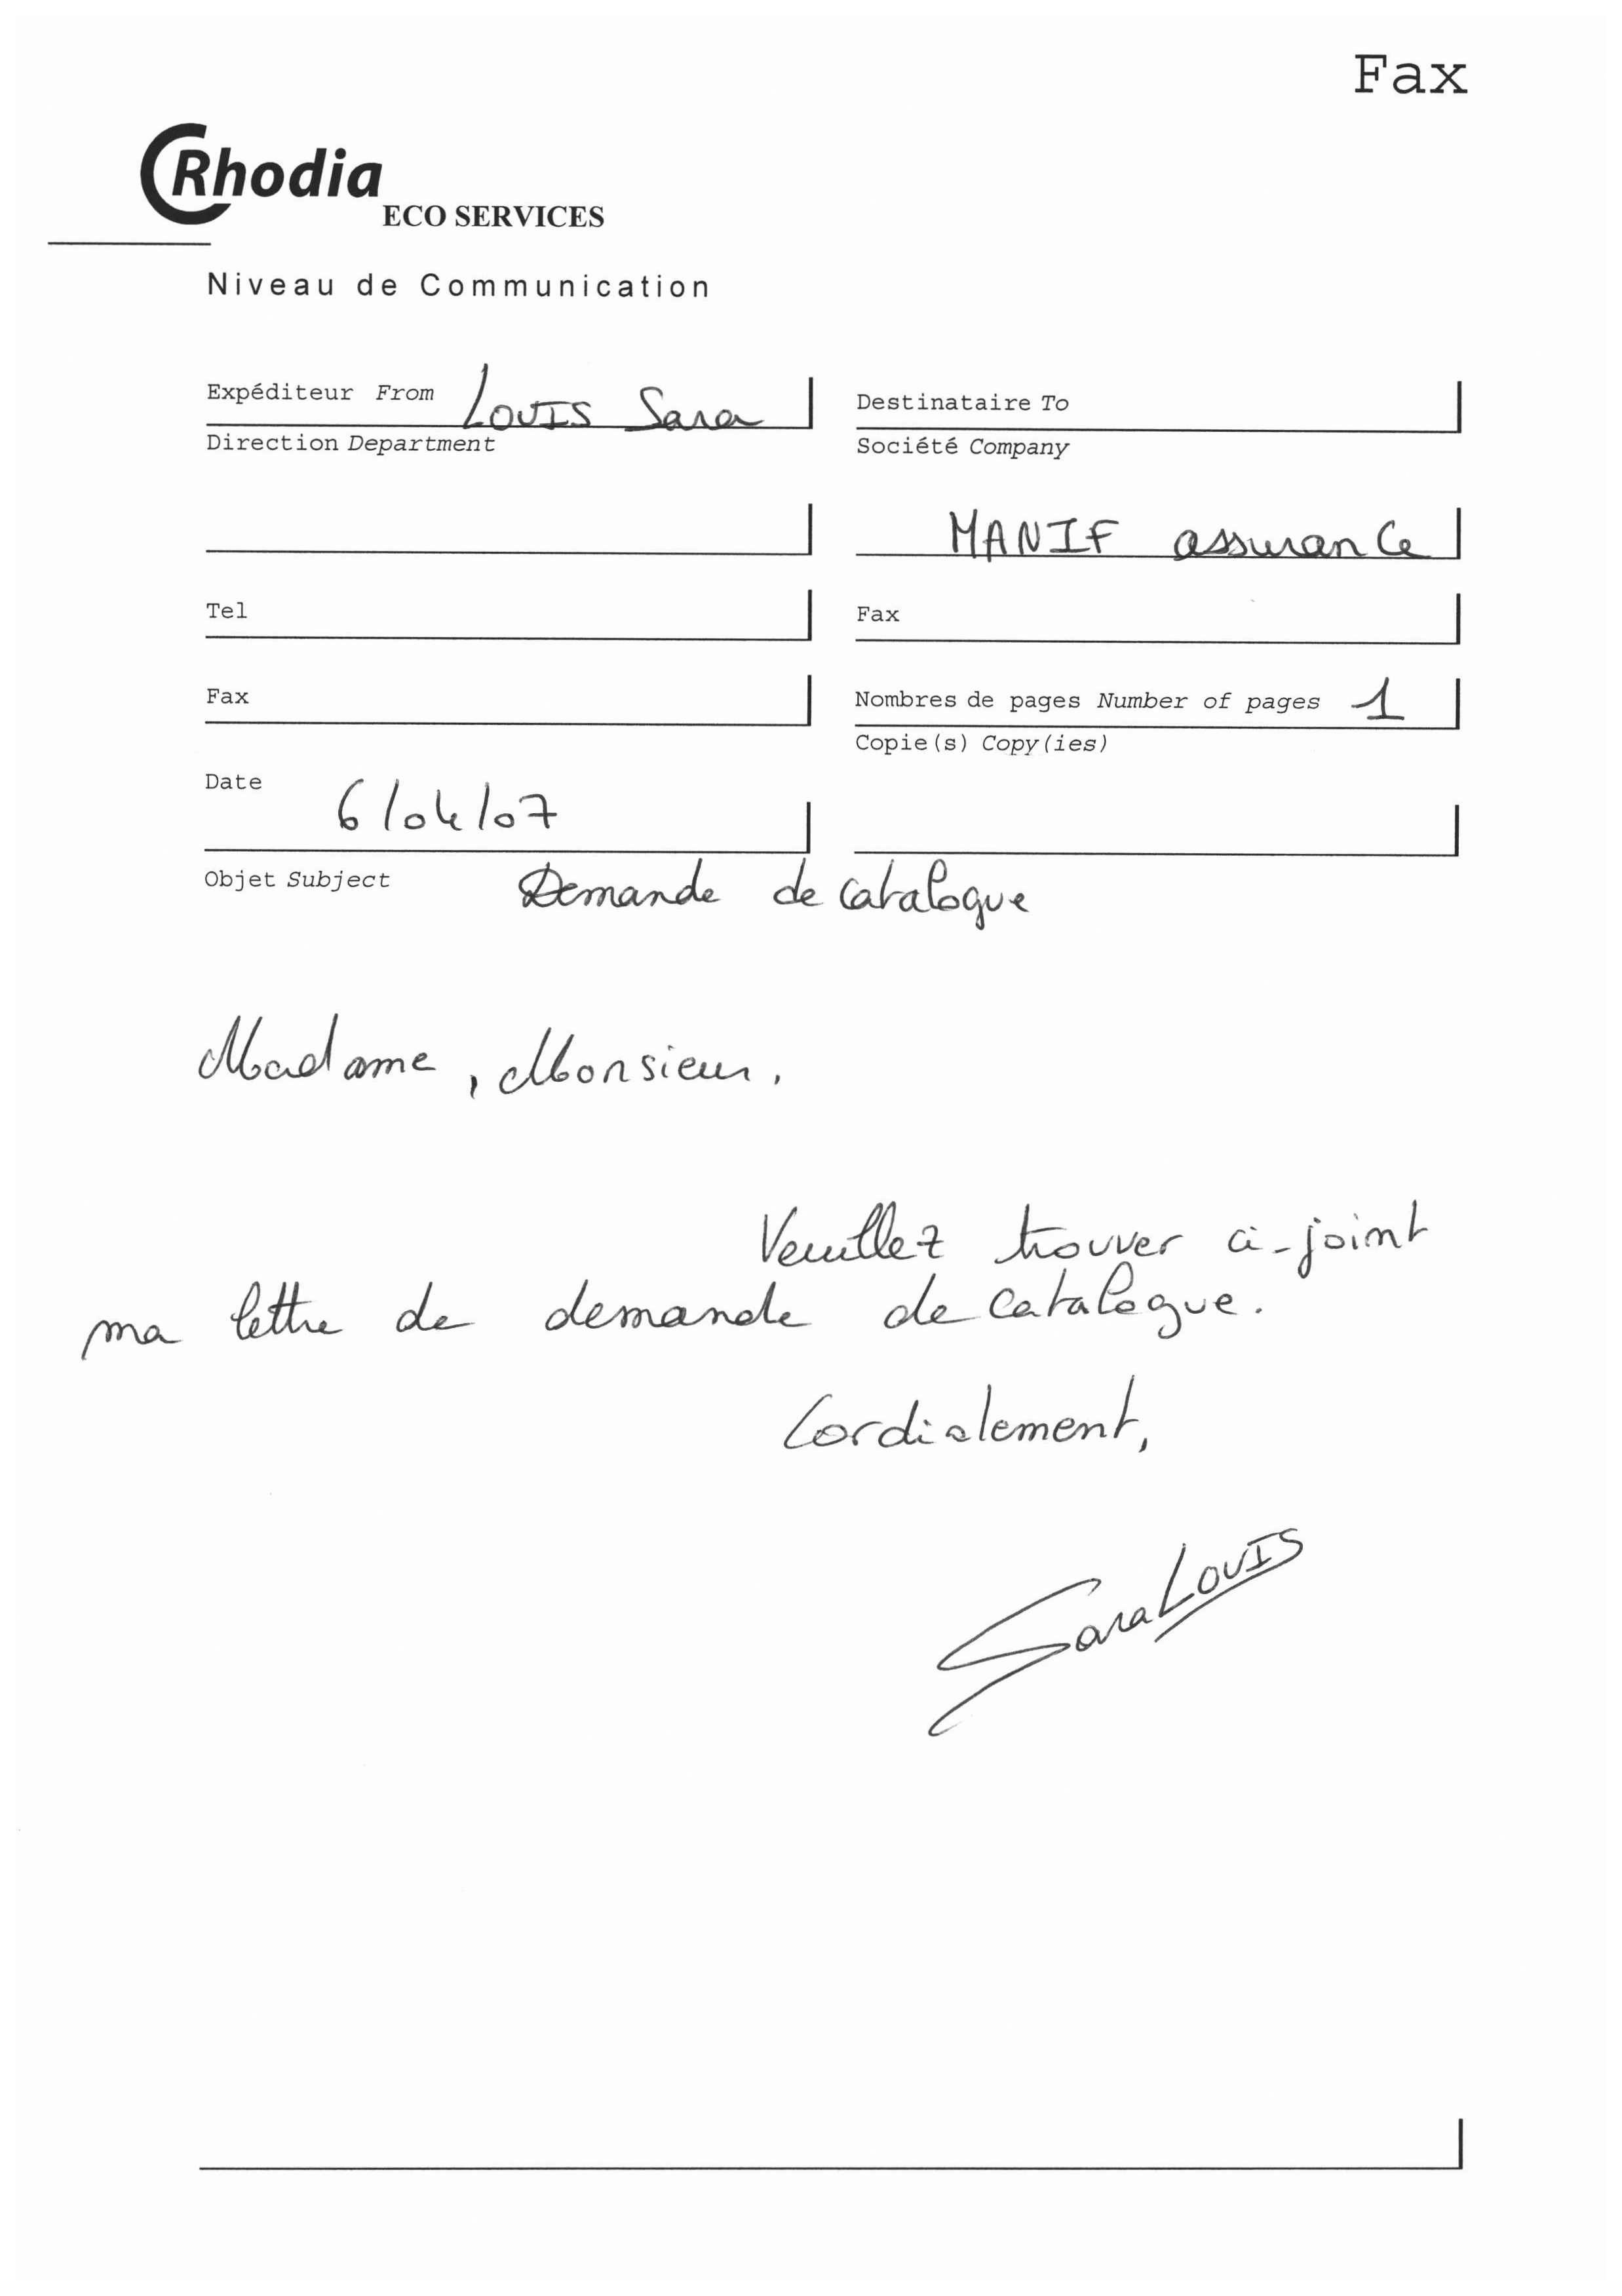 Fax
Rhodia
ECO SERVICES
Niveau de Communication
Expéditeur From LOUIS Sara
Destinataire To
Direction Department
Société Company
MANIF assurance
Tel
Fax
Fax
Nombres de pages Number of pages 1
Copie(s) Copy(ies)
Date 6/04/07
Objet Subject Demande de catalogue
Madame, Monsieur,
Veuillez trouver ci-joint
ma lettre de demande de catalogue.
Cordialement,
Sara LOUIS